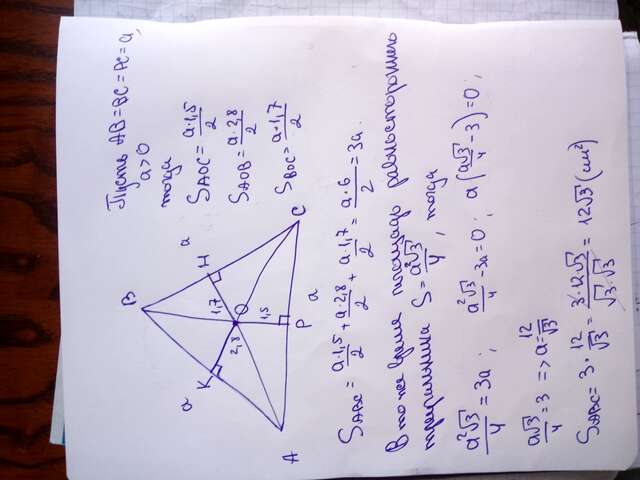 Пусть AB=BC=AC=a,
a>0
тогда
S_AOC = a·1,5/2
S_AOB = a·2,8/2
S_BOC = a·1,7/2
B
a
H
K
1,7
O
2,8
1,5
C
a
P
a
A
S_ABC = a·1,5/2 + a·2,8/2 + a·1,7/2 = a·6/2 = 3a.
В то же время площадь равностороннего
треугольника S = a²√3/4, тогда
a²√3/4 = 3a; a²√3/4 - 3a = 0; a(a√3/4 - 3) = 0;
a√3/4 = 3 => a = 12/√3
S_ABC = 3·12/√3 = 3·12√3/√3·√3 = 12√3 (см²)